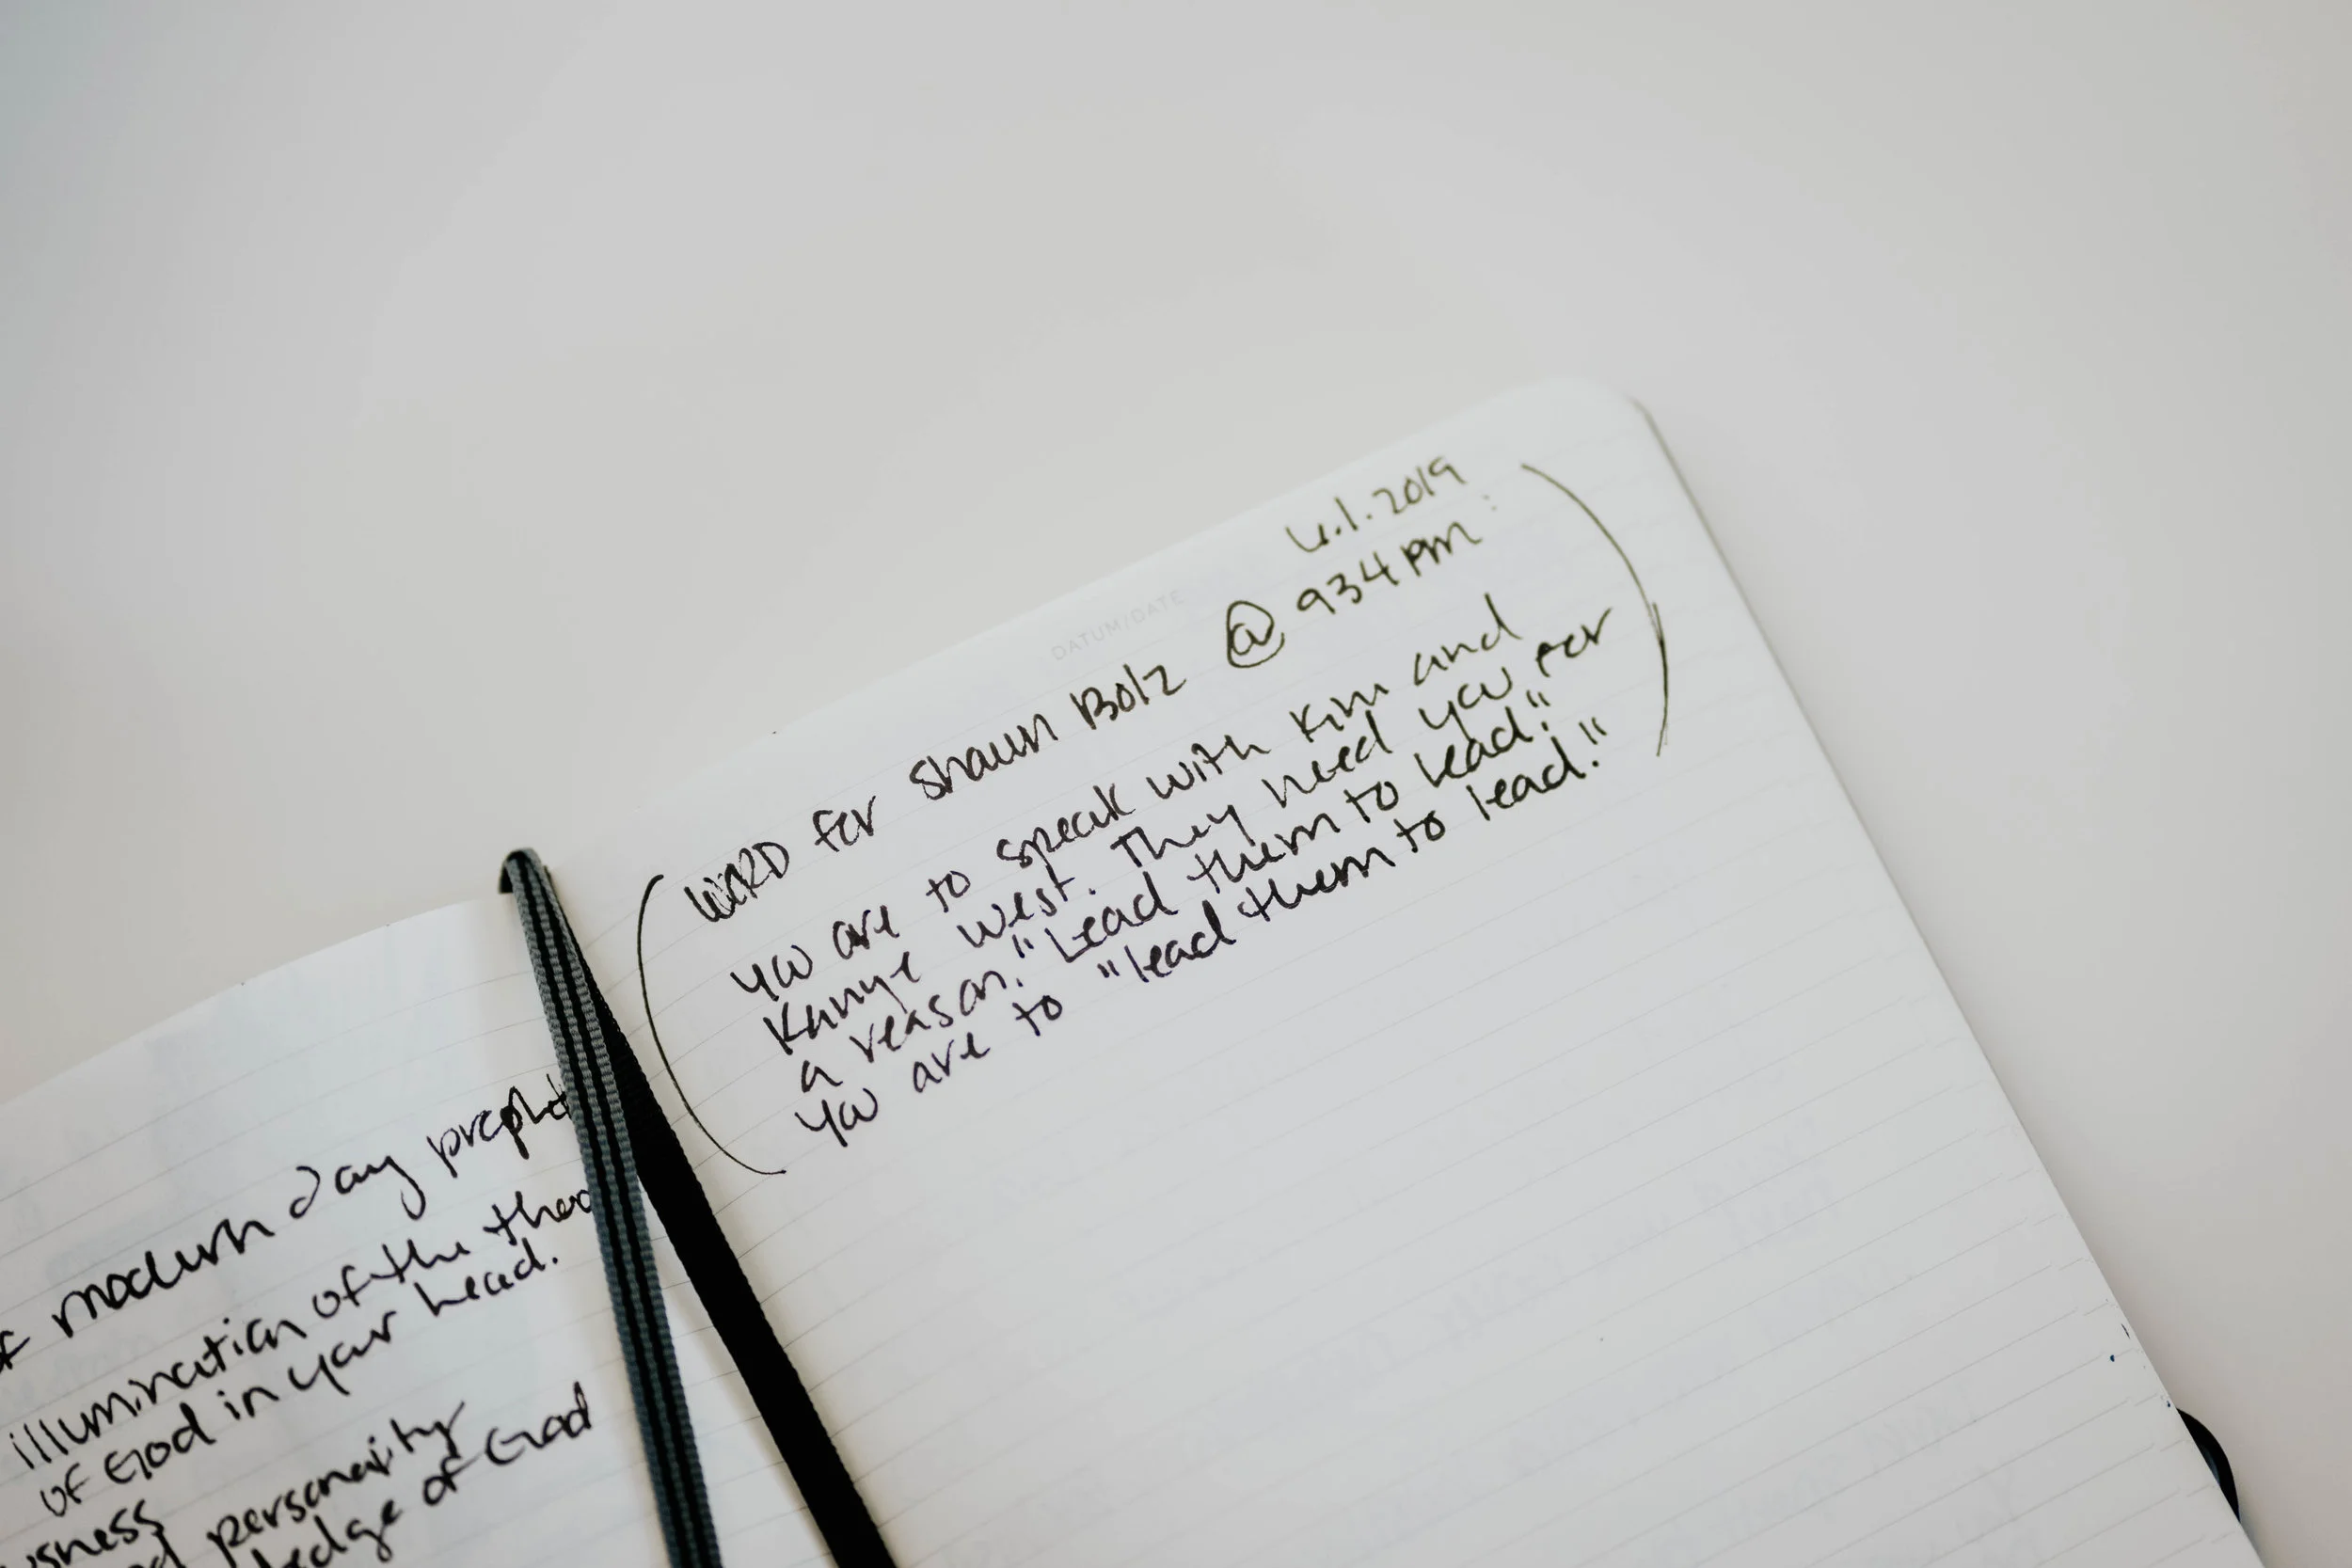 of modern day prophet
illumination of the
of God in your head.
personality
of God
DATUM/DATE
6.1.2019
WORD for Shawn Bolz @ 934pm:
You are to speak with Kim and
Kanye West. They need you for
a reason. "Lead them to lead."
You are to "lead them to lead."